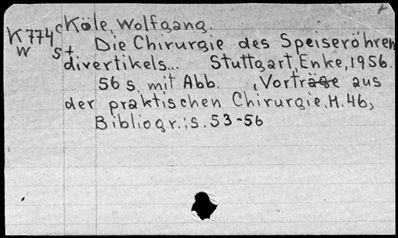 K774 c Köle, Wolfgang.
W St Die Chirurgie des Speiseröhren
divertikels... Stuttgart, Enke, 1956.
56 s. mit Abb. (Vorträge aus
der praktischen Chirurgie, H. 46)
Bibliogr.: s. 53-56